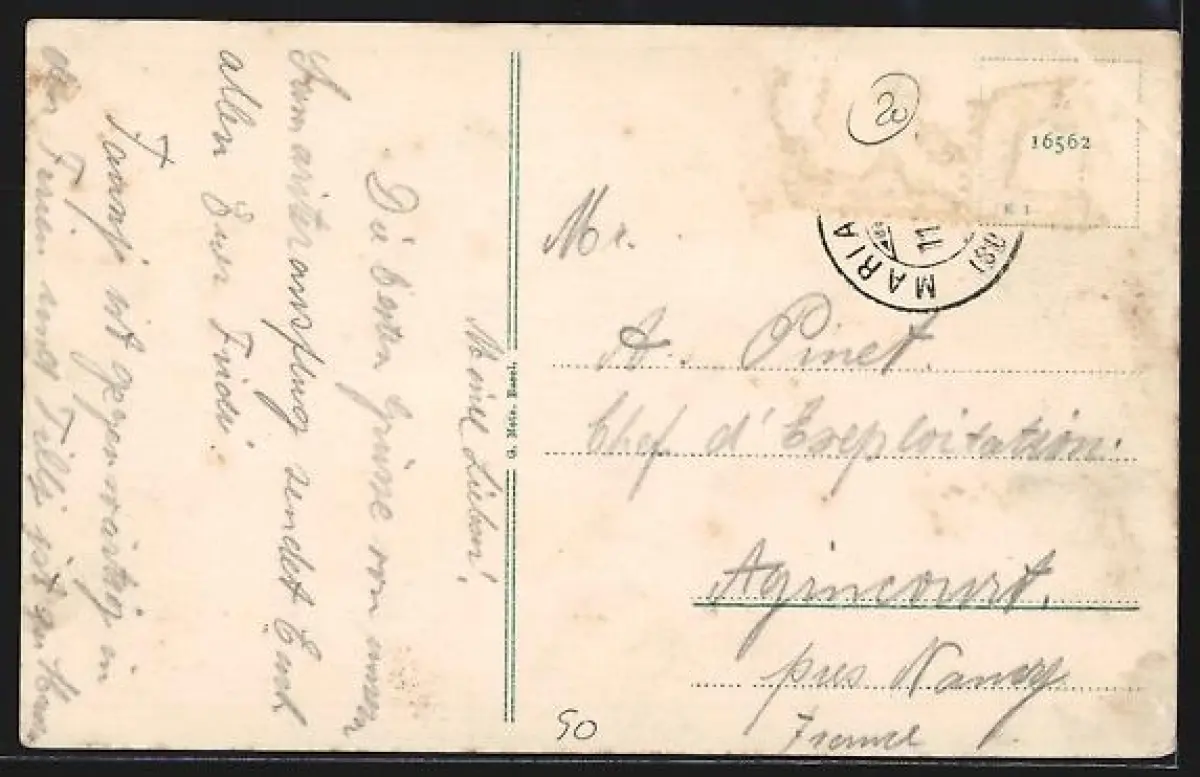 Meine Lieben!
Die besten Grüsse von unserem
Samariterausflug sendet Euch
allen Euer Fridi.
Fannj ist gegenwärtig in
den Ferien und Tillj ist zu Haus
G. Metz. Basel.
20
16562
K 1
MARIA
11
Mr.
A. Pinet.
Chef d'Exploitation.
Agincourt.
près Nancy
France
50